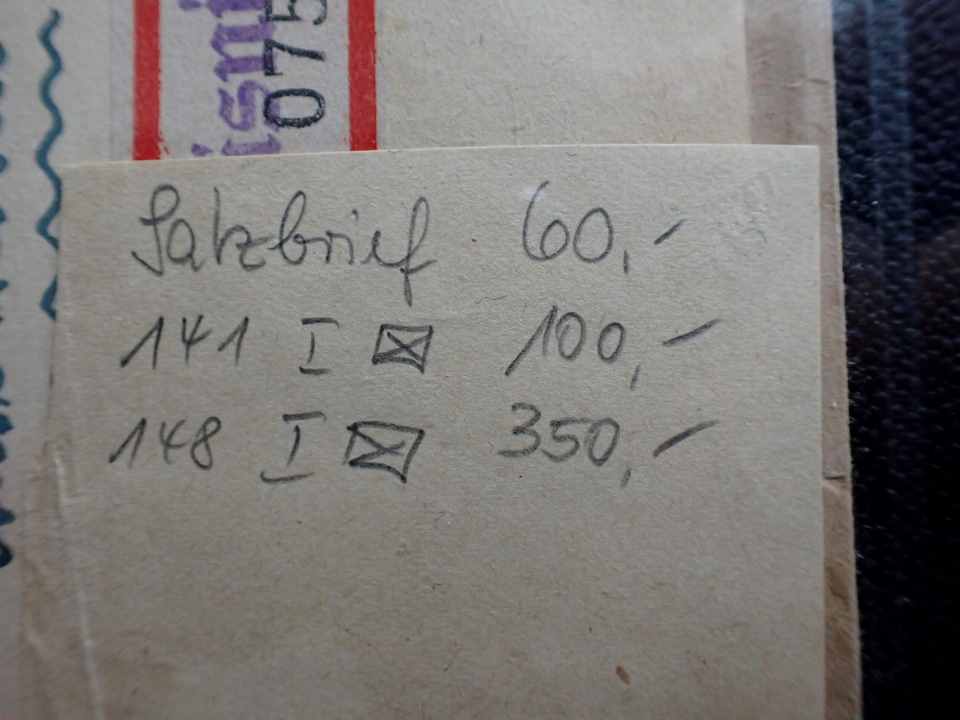 075
Satzbrief 60,-
141 I ✉ 100,-
148 I ✉ 350,-